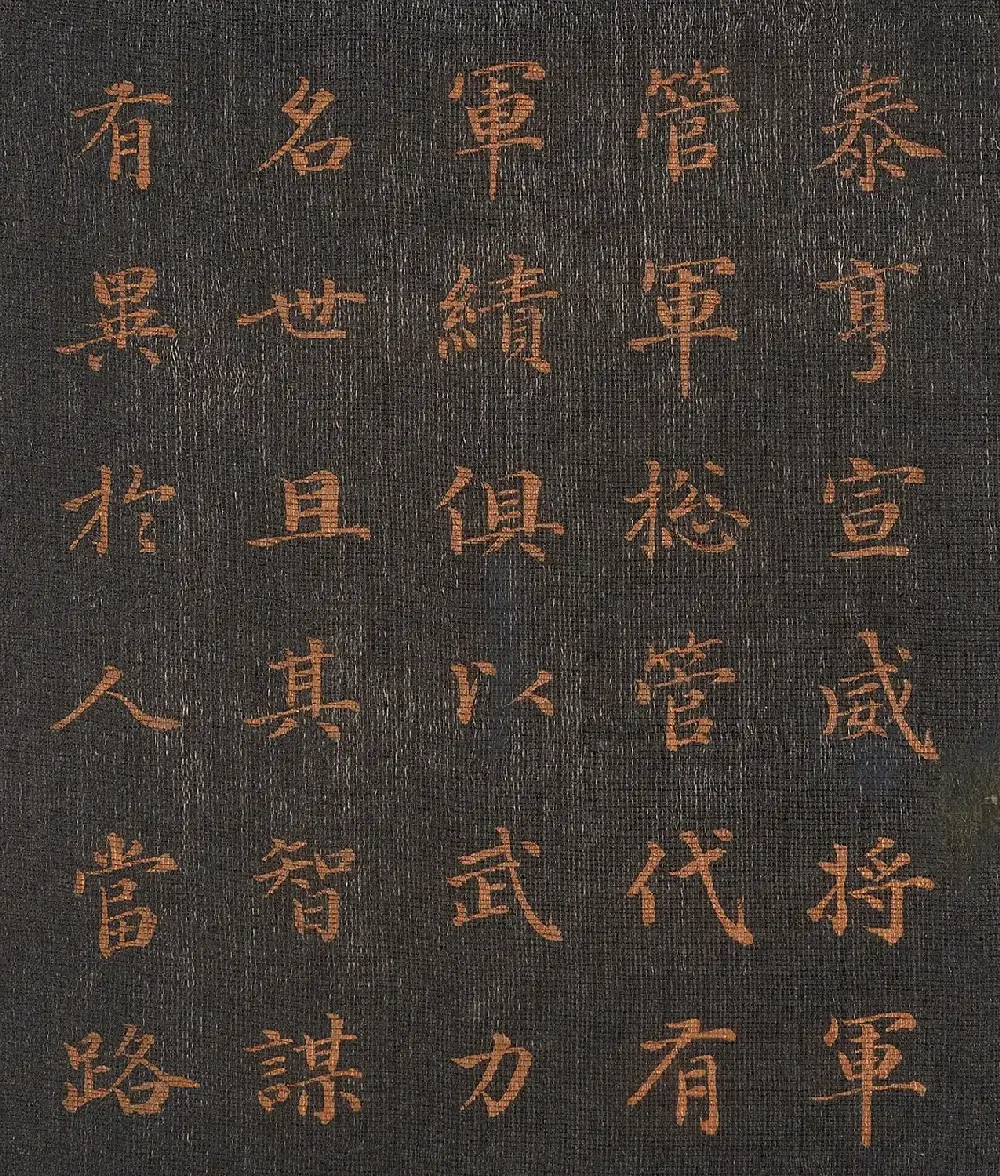 泰亨宣威将軍
管軍捴管代有
軍績俱以武力
名世且其智謀
有異扵人當路